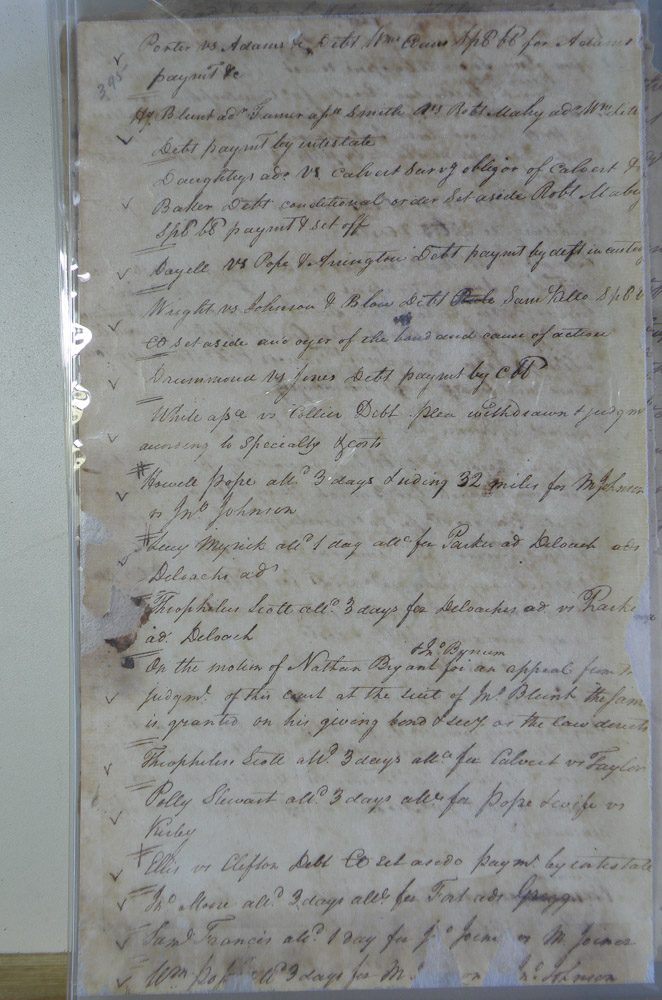 Porter vs Adams &c Debt Wm Spl bl for Adams
paymt &c
395
Hy Blunt adr Turner apee Smith vs Robt Maby adr Wm
Debt paymt by intestate
Daughtrys adr vs Calvert Survg obligor of Calvert &
Baker Debt conditional order Set aside Robt Maby
Spl bl paymt & set off
Dayell vs Pope & Arrington Debt paymt by deft in custody
Wright vs Johnson & Blow Debt Saml Kello Spl b
CO set aside and oyer of the bond and cause of action
Drummond vs Jones Debt paymt by
White apee vs Collier Debt plea withdrawn & judgm
according to Specialty & costs
Howell Pope alld 3 days & riding 32 miles for M Johnson
vs Jno Johnson
Lucy Myrick alld 1 day attce for Parker ad Deloach ads
Deloachs ad
Theophelus Scott alld 3 days for Deloaches ad vs Parke
ad. Deloach
& Jno Bynum
On the motion of Nathan Bryant for an appeal from
Judgmt. of this court at the suit of Jno Blunt the Sam
is granted on his giving bond & secy as the law directs
Theophelus Scott alld 3 days attce for Calvert vs Taylor
Polly Stewart alld 3 days attce for Pope & wife vs
Kirby
Ellis vs Clifton Debt CO set aside paymt by intestate
Jno Moore alld 3 days attce for Fort ads Gregg
Saml Francis alld 1 day for Joiner vs M. Joiner
Wm Pope alld 3 days for M. Jno. Johnson